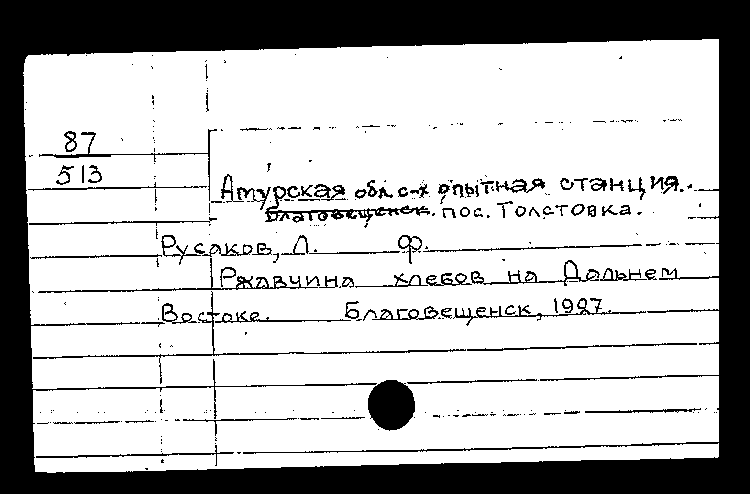 87
513
Амурская обл. с-х опытная станция.
Благовещенск. пос. Толстовка.
Русаков, Л. Ф.
Ржавчина хлебов на Дальнем
Востоке. Благовещенск, 1927.